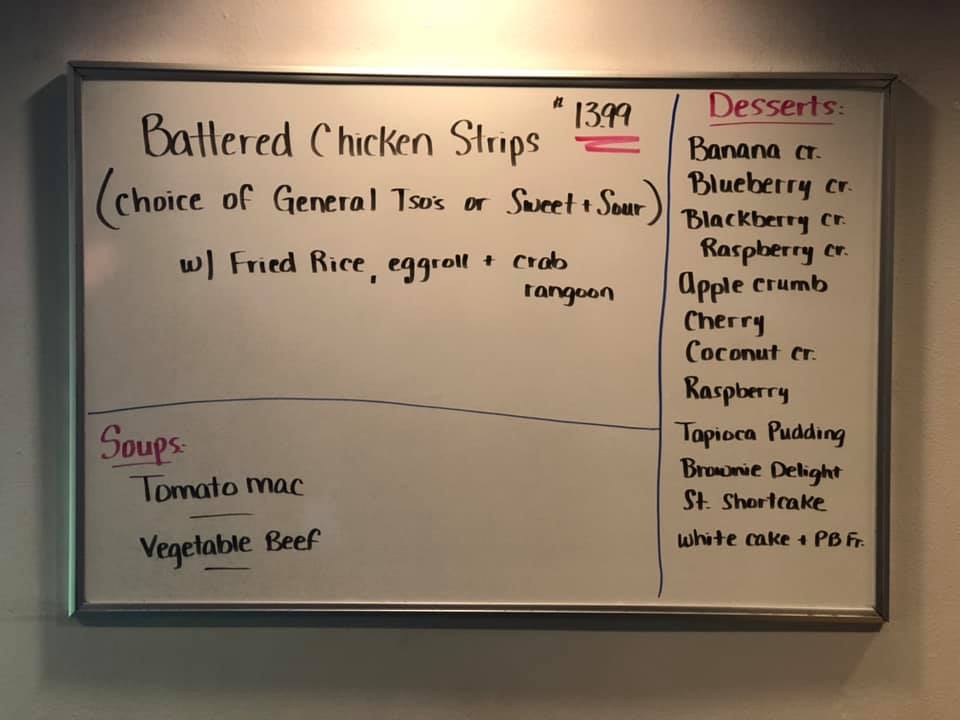 Battered Chicken Strips $13.99
(choice of General Tso's or Sweet + Sour)
w/ Fried Rice, eggroll + crab
rangoon
Soups:
Tomato mac
Vegetable Beef
Desserts:
Banana cr.
Blueberry cr.
Blackberry cr.
Raspberry cr.
Apple crumb
Cherry
Coconut cr.
Raspberry
Tapioca Pudding
Brownie Delight
St. Shortcake
White cake + PB Fr.